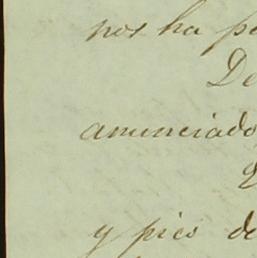 nos ha pe
De
anunciado
y pico de